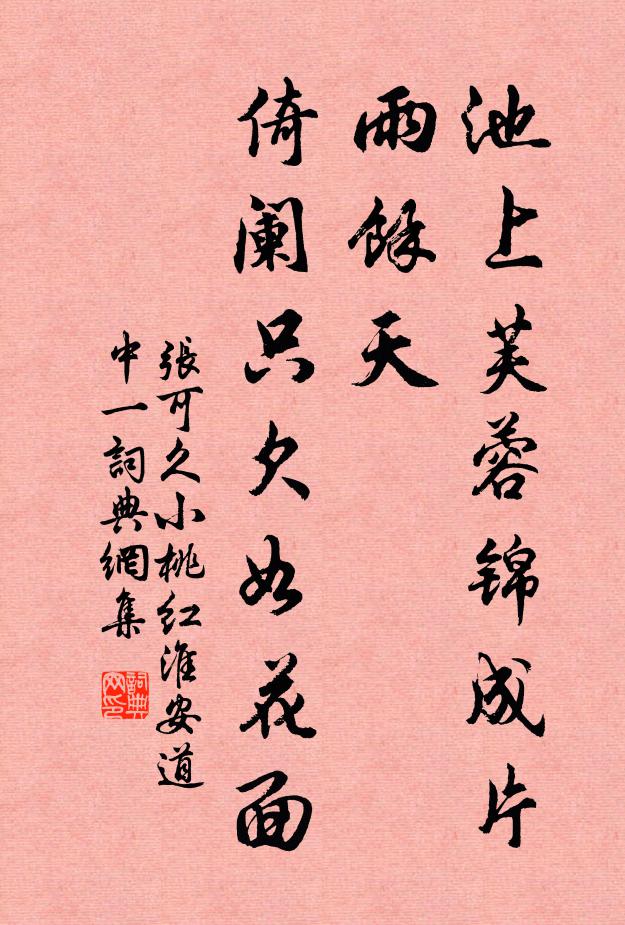 池上芙蓉锦成片
雨餘天
倚阑只欠如花面
張可久小桃红淮安道
中一詞典網集
詞典网印